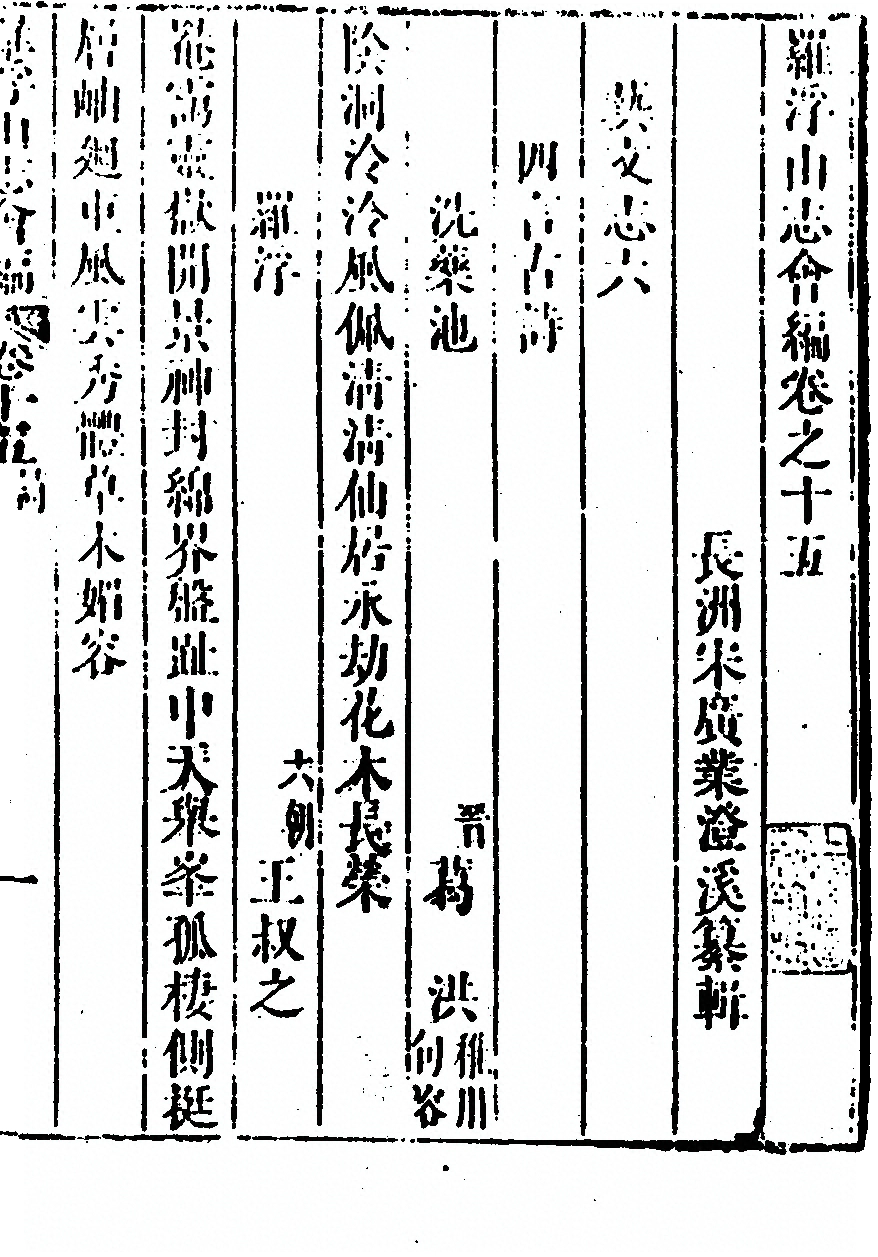 羅浮山志會編卷之十五
長洲宋廣業澄溪纂輯
藝文志六
四言古詩
洗藥池 晉葛 洪 稚川 句容
陰洞泠泠風佩清清仙居永劫花木長榮
羅浮 六朝王叔之
菴藹靈嶽開景神封綿界盤趾中天舉峯孤棲側挺
層岫迴重風雲秀體草木媚容
羅浮山志會編 卷十五 詩 一